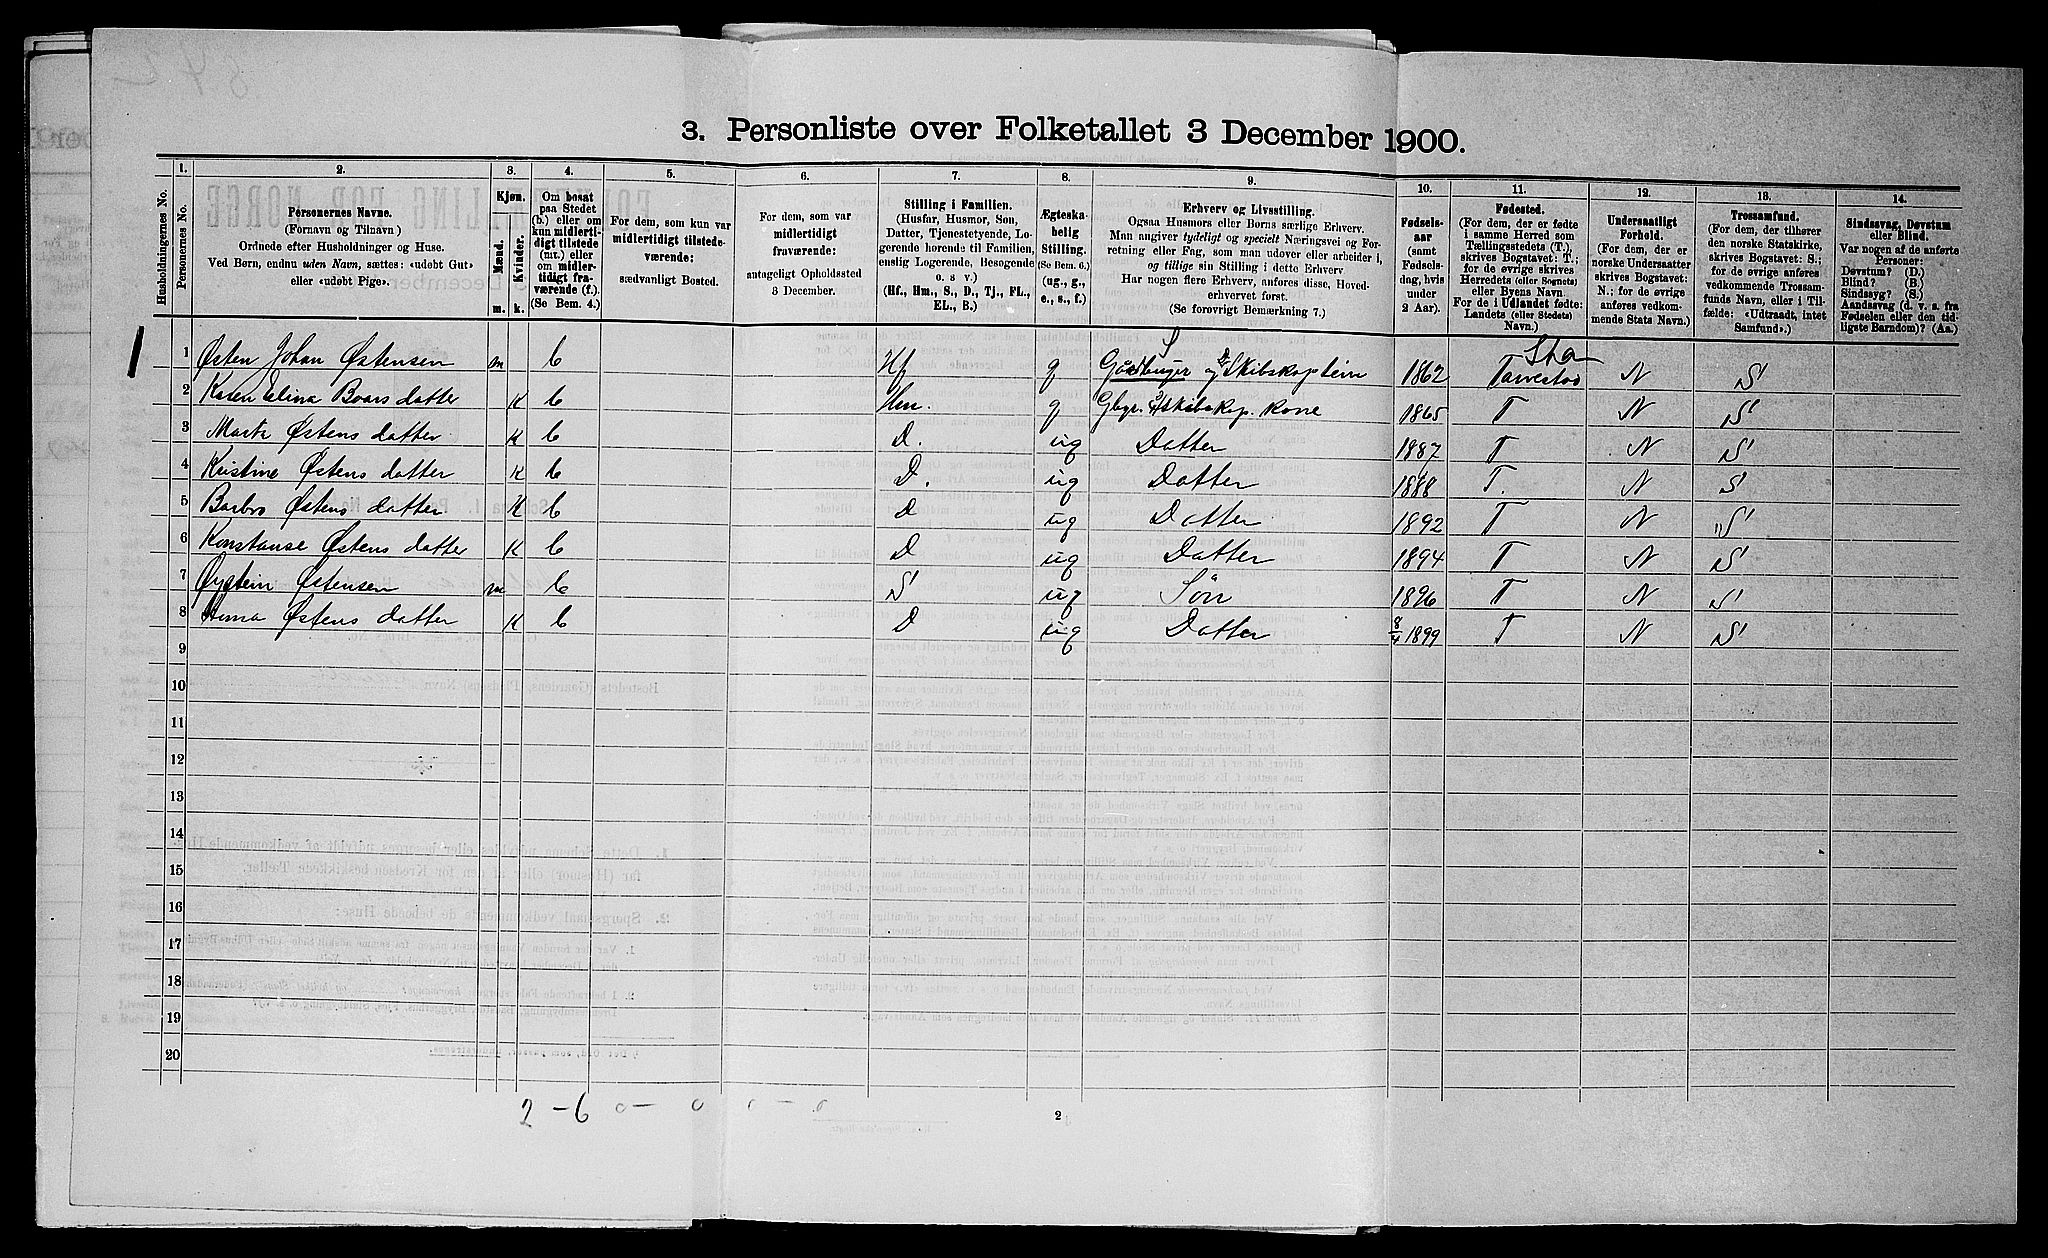 3. Personliste over Folketallet 3 December 1900.
1. 2. 3. 4. 5. 6. 7. 8. 9. 10. 11. 12. 13. 14.
Husholdningernes No.
Personernes No.
Personernes Navne.
(Fornavn og Tilnavn)
Ordnede efter Husholdninger og Huse.
Ved Børn, endnu uden Navn, sættes: «udøbt Gut»
eller «udøbt Pige».
Kjøn.
Mænd.
Kvinder.
m. k.
Om bosat
paa Stedet
(b.) eller om
kun midler-
tidigt tilstede
(mt.) eller
om midler-
tidigt fra-
værende (f.).
(Se Bem. 4.)
For dem, som kun var
midlertidigt tilstede-
værende:
sædvanligt Bosted.
For dem, som var
midlertidigt
fraværende:
antageligt Opholdssted
3 December.
Stilling i Familien.
(Husfar, Husmor, Søn,
Datter, Tjenestetyende, Lo-
gerende hørende til Familien,
enslig Logerende, Besøgende
o. s. v.)
(Hf., Hm., S., D., Tj., FL.,
EL., B.)
Ægteska-
belig
Stilling.
(Se Bem. 6.)
(ug., g.,
e., s., f.)
Erhverv og Livsstilling.
Ogsaa Husmors eller Børns særlige Erhverv.
Man angiver tydeligt og specielt Næringsvei og For-
retning eller Fag, som man udøver eller arbeider i,
og tillige sin Stilling i dette Erhverv.
Har nogen flere Erhverv, anføres disse, Hoved-
erhvervet først.
(Se forøvrigt Bemærkning 7.)
Fødsels-
aar
(samt
Fødsels-
dag, hvis
under
2 Aar).
Fødested.
(For dem, der er fødte
i samme Herred som
Tællingsstedets (T.),
skrives Bogstavet: T.;
for de øvrige skrives
Herredets (eller Sognets)
eller Byens Navn.
For de i Udlandet fødte:
Landets (eller Stedets)
Navn.)
Undersaatligt
Forhold.
(For dem, der er
norske Undersaatter
skrives Bogstavet:
N.; for de øvrige
anføres vedkom-
mende Stats Navn.)
Trossamfund.
(For dem, der tilhører
den norske Statskirke,
skrives Bogstavet: S.;
for de øvrige anføres
vedkommende Trossam-
funds Navn, eller i Til-
fælde: «Udtraadt, intet
Samfund».)
Sindssvag, Døvstum
eller Blind.
Var nogen af de anførte
Personer:
Døvstum? (D.)
Blind? (B.)
Sindssyg? (S.)
Aandssvag (d. v. s. fra
Fødselen eller den tid-
ligste Barndom)? (Aa.)
1 Østen Johan Østensen m b Hf g Gårdbruger og Skibskaptein 1862 N S
2 Karen Elina Boars datter K b Hm. g Gbgr. Skibskap. Kone 1865 T N S
3 Marta Østens datter K b D. ug Datter 1887 T N S
4 Kristine Østens datter K b D. ug Datter 1888 T. N S
5 Barbro Østens datter K b D ug Datter 1892 T N S
6 Konstanse Østens datter K b D ug Datter 1894 T N S
7 Øystein Østensen m b S ug Søn 1896 T N S
8 Østens datter K b D ug Datter 8/4 1899 T N S
9
10
11
12
13
14
15
16
17
18
19
20
2 – 6 0 – 0 0 – 0
2